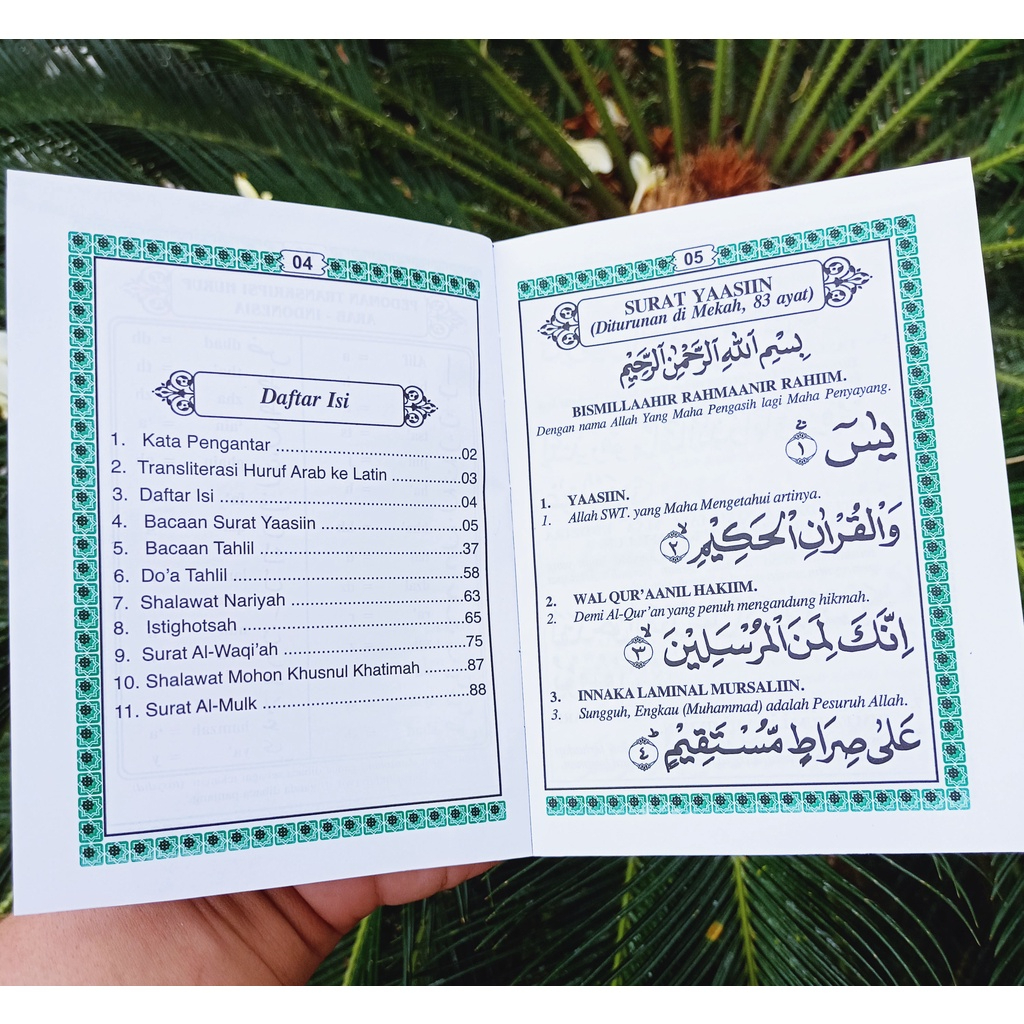 04
Daftar Isi
1. Kata Pengantar ..............................................02
2. Transliterasi Huruf Arab ke Latin .................03
3. Daftar Isi ............................................................04
4. Bacaan Surat Yaasiin ...................................05
5. Bacaan Tahlil ...................................................37
6. Do’a Tahlil .........................................................58
7. Shalawat Nariyah ...........................................63
8. Istighotsah ........................................................65
9. Surat Al-Waqi’ah ..............................................75
10. Shalawat Mohon Khusnul Khatimah .........87
11. Surat Al-Mulk ..................................................88
05
SURAT YAASIIN
(Diturunan di Mekah, 83 ayat)
بِسْمِ اللّٰهِ الرَّحْمٰنِ الرَّحِيْمِ
BISMILLAAHIR RAHMAANIR RAHIIM.
Dengan nama Allah Yang Maha Pengasih lagi Maha Penyayang.
يٰسۤ ۚ ١
1. YAASIIN.
1. Allah SWT. yang Maha Mengetahui artinya.
وَالْقُرْاٰنِ الْحَكِيْمِ ۙ ٢
2. WAL QUR’AANIL HAKIIM.
2. Demi Al-Qur’an yang penuh mengandung hikmah.
اِنَّكَ لَمِنَ الْمُرْسَلِيْنَ ۙ ٣
3. INNAKA LAMINAL MURSALIIN.
3. Sungguh, Engkau (Muhammad) adalah Pesuruh Allah.
عَلٰى صِرَاطٍ مُّسْتَقِيْمٍ ۗ ٤